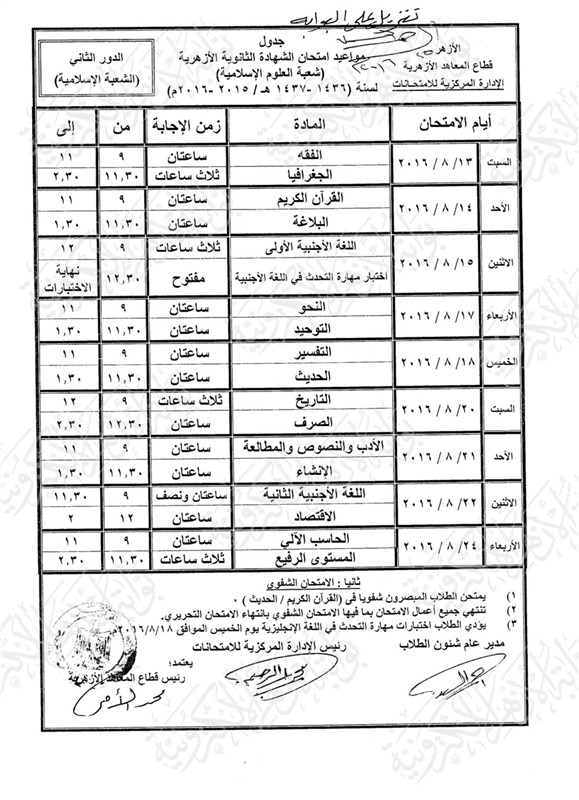 تنزيل على البوابة
الأزهر
قطاع المعاهد الأزهرية
الإدارة المركزية للامتحانات
جدول
مواعيد امتحان الشهادة الثانوية الأزهرية
(شعبة العلوم الإسلامية)
لسنة (١٤٣٦ - ١٤٣٧ هـ / ٢٠١٥ - ٢٠١٦م)
الدور الثاني
(الشعبة الإسلامية)
أيام الامتحان المادة زمن الإجابة من إلى
السبت ١٣ / ٨ / ٢٠١٦ الفقه ساعتان ٩ ١١
الجغرافيا ثلاث ساعات ١١,٣٠ ٢,٣٠
الأحد ١٤ / ٨ / ٢٠١٦ القرآن الكريم ساعتان ٩ ١١
البلاغة ساعتان ١١,٣٠ ١,٣٠
الاثنين ١٥ / ٨ / ٢٠١٦ اللغة الأجنبية الأولى ثلاث ساعات ٩ ١٢
اختبار مهارة التحدث في اللغة الأجنبية مفتوح ١٢,٣٠ نهاية الاختبارات
الأربعاء ١٧ / ٨ / ٢٠١٦ النحو ساعتان ٩ ١١
التوحيد ساعتان ١١,٣٠ ١,٣٠
الخميس ١٨ / ٨ / ٢٠١٦ التفسير ساعتان ٩ ١١
الحديث ساعتان ١١,٣٠ ١,٣٠
السبت ٢٠ / ٨ / ٢٠١٦ التاريخ ثلاث ساعات ٩ ١٢
الصرف ساعتان ١٢,٣٠ ٢,٣٠
الأحد ٢١ / ٨ / ٢٠١٦ الأدب والنصوص والمطالعة ساعتان ٩ ١١
الإنشاء ساعتان ١١,٣٠ ١,٣٠
الاثنين ٢٢ / ٨ / ٢٠١٦ اللغة الأجنبية الثانية ساعتان ونصف ٩ ١١,٣٠
الاقتصاد ساعتان ١٢ ٢
الأربعاء ٢٤ / ٨ / ٢٠١٦ الحاسب الآلي ساعتان ٩ ١١
المستوى الرفيع ثلاث ساعات ١١,٣٠ ٢,٣٠
ثانيا : الامتحان الشفوي
١) يمتحن الطلاب المبصرون شفويا فى (القرآن الكريم / الحديث ) ٠
٢) تنتهي جميع أعمال الامتحان بما فيها الامتحان الشفوي بانتهاء الامتحان التحريري.
٣) يؤدي الطلاب اختبارات مهارة التحدث في اللغة الإنجليزية يوم الخميس الموافق ٢٠١٦/٨/١٨م.
مدير عام شئون الطلاب
رئيس الإدارة المركزية للامتحانات
يعتمد؛
رئيس قطاع المعاهد الأزهرية